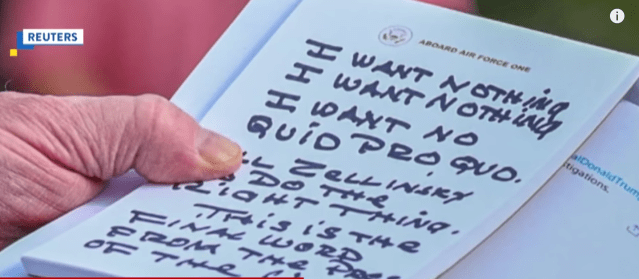 REUTERS
ABOARD AIR FORCE ONE
I WANT NOTHING
I WANT NOTHING
I WANT NO
QUID PRO QUO.
ZELLINSKY
DO THE
RIGHT THING.
THIS IS THE
FINAL WORD
FROM THE
OF THE
alDonaldTrum
tigations.